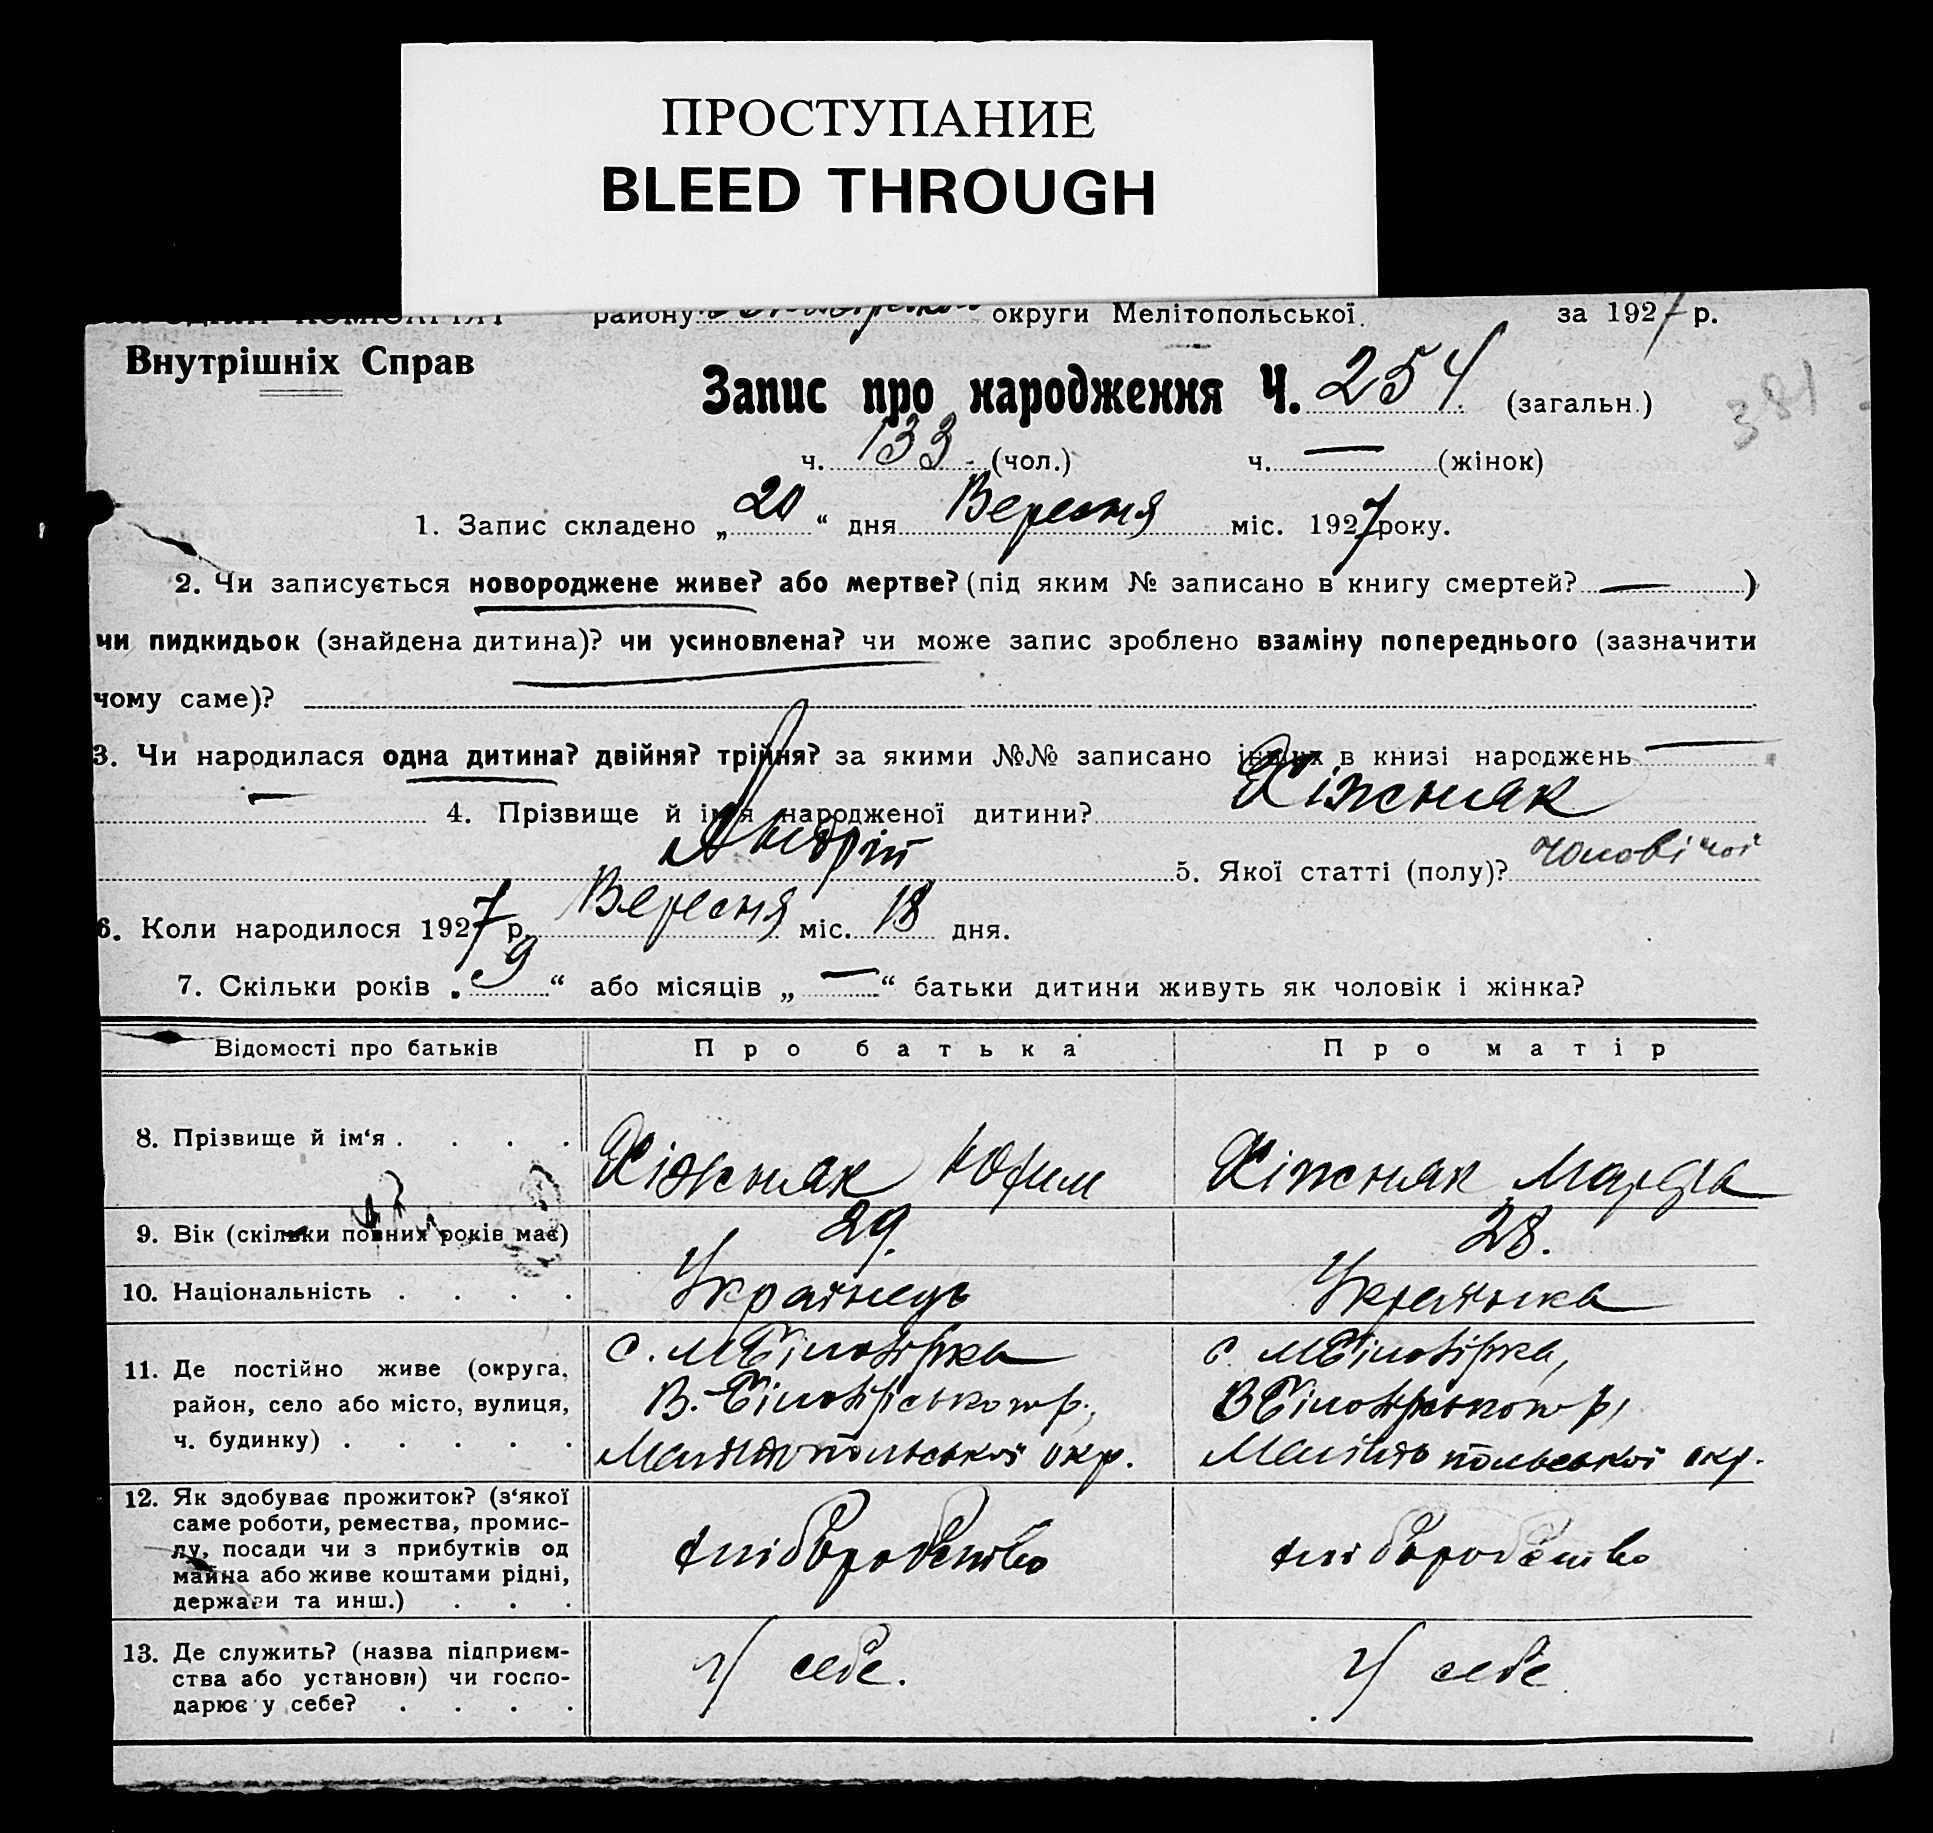 ПРОСТУПАНИЕ
BLEED THROUGH
району округи Мелітопольської за 1927 р.
Внутрішніх Справ
Запис про народження Ч. 254 (загальн.)
381
ч. 133 (чол.) ч. — (жінок)
1. Запис складено „20“ дня Вересня міс. 1927 року.
2. Чи записується новороджене живе? або мертве? (під яким № записано в книгу смертей? — )
чи пидкидьок (знайдена дитина)? чи усиновлена? чи може запис зроблено взаміну попереднього (зазначити
чому саме)?
3. Чи народилася одна дитина? двійня? трійня? за якими №№ записано інших в книзі народжень —
— 4. Прізвище й ім'я народженої дитини? Хіжняк
Андрій 5. Якої статті (полу)? чоловічої
6. Коли народилося 1927 р. Вересня міс. 18 дня.
7. Скільки років „9“ або місяців „—“ батьки дитини живуть як чоловік і жінка?
Відомості про батьків Про батька Про матір
8. Прізвище й ім‘я . . . . Хіжняк Юхим Хіжняк Марфа
9. Вік (скільки повних років має) 29. 28.
10. Національність . . . . Українець Українка
11. Де постійно живе (округа,
район, село або місто, вулиця,
ч. будинку) . . . . .
с. МБілозірка
В.-Білозірського р.,
Мелітопольської окр.
с. МБілозірка,
ВБілозірського р,
Мелітопольської окр.
12. Як здобуває прожиток? (з‘якої
саме роботи, ремества, промис-
лу, посади чи з прибутків од
майна або живе коштами рідні,
держави та инш.) . . .
хліборобство
хліборобство
13. Де служить? (назва підприєм-
ства або установи) чи госпо-
дарює у себе? . . . .
У себе.
У себе